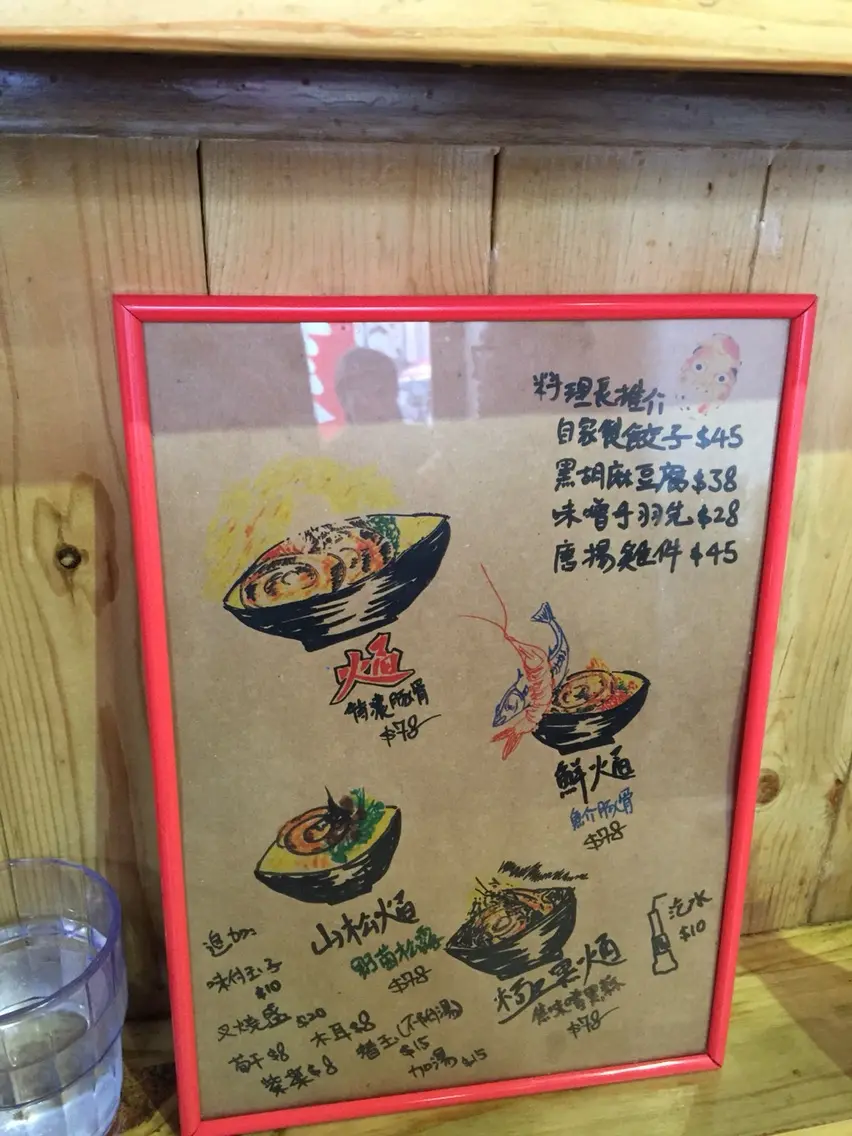 料理長推介
自家製餃子 $45
黑胡麻豆腐 $38
味噌手羽先 $28
唐揚雞件 $45
焔
特濃豚骨
$78
鮮焔
魚介豚骨
$78
山松焔
野菌松露
$78
極黑焔
焦味噌黑蒜
$78
汽水
$10
追加:
味付玉子
$10
叉燒盛 $20
筍干 $8
木耳 $8
紫菜 $8
替玉(不付湯)
$15
加湯 $15